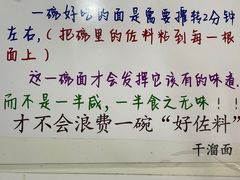 一碗好吃的面是需要搅转2分钟
左右,(把碗里的佐料粘到每一根
面上)
这一碗面才会发挥它该有的味道.
而不是一半咸,一半食之无味!!
才不会浪费一碗“好佐料”
干溜面